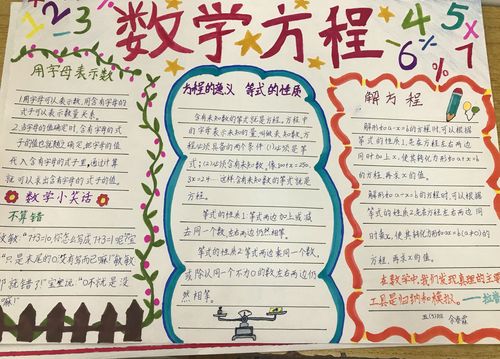 1 2 - 3
数学方程
4 5
6 ÷ % × 7
用字母表示数
1.用字母可以表示数,用含有字母的
式子可以表示数量关系。
2.当字母的值确定时,含有字母的式
子的值也就随之确定,把字母的值
代入含有字母的式子里,通过计算
就可以求出含有字母的式子的值。
数学小笑话
不算错
敏敏:"7+3=10,你怎么写成7+3=1呢?宝
"只是末尾的0禁有写而已嘛!敏敏
了就错了!"宝宝说:"0不就是没
嘛!"
方程的意义 等式的性质
含有未知数的等式就是方程。方程中
的字母表示未知的量,叫做未知数。方
程必须具备的两个条件:(1)必须是等
式;(2)必须含有未知数,像
3x=2.4 这样含有未知数的等式就是
方程。
等式的性质1:等式两边加上或减
去同一个数,左右两边仍然相等。
等式的性质2:等式两边乘同一个数,
或除以同一个不为0的数,左右两边仍
然相等。
解方程
解形如a-x=b的方程时,可以根据
等式的性质1,在方程左右两边同
时加上x,使其转化为形如a+x=b
的方程,再求x的值。
解形如a÷x=b的方程时,可以根据
等式的性质2,在方程左右两边同
时乘x,使其转化为形如ax=b(a≠0)的
方程,再求x的值。
在数学中,我们发现真理的主要
工具是归纳和模拟。
五(3)班